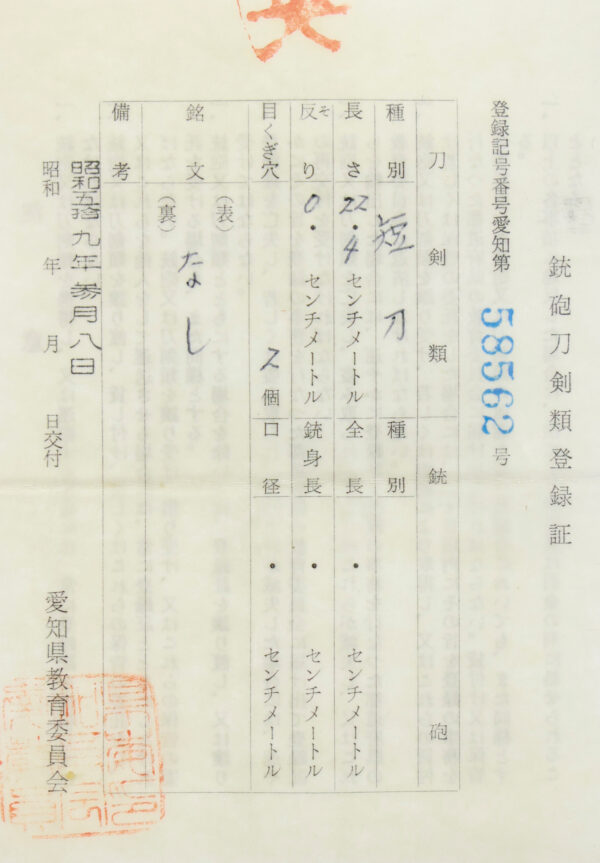 銃砲刀剣類登録証
登録記号番号愛知第 58562 号
刀剣類 銃砲
種別 短刀 種別
長さ 22・4 センチメートル 全長 ・ センチメートル
反り そ 0・ センチメートル 銃身長 ・ センチメートル
目くぎ穴 2個 口径 ・ センチメートル
銘文 (表) なし
(裏)
備考
昭和五拾九年参月八日
昭和 年 月 日交付
愛知県教育委員会